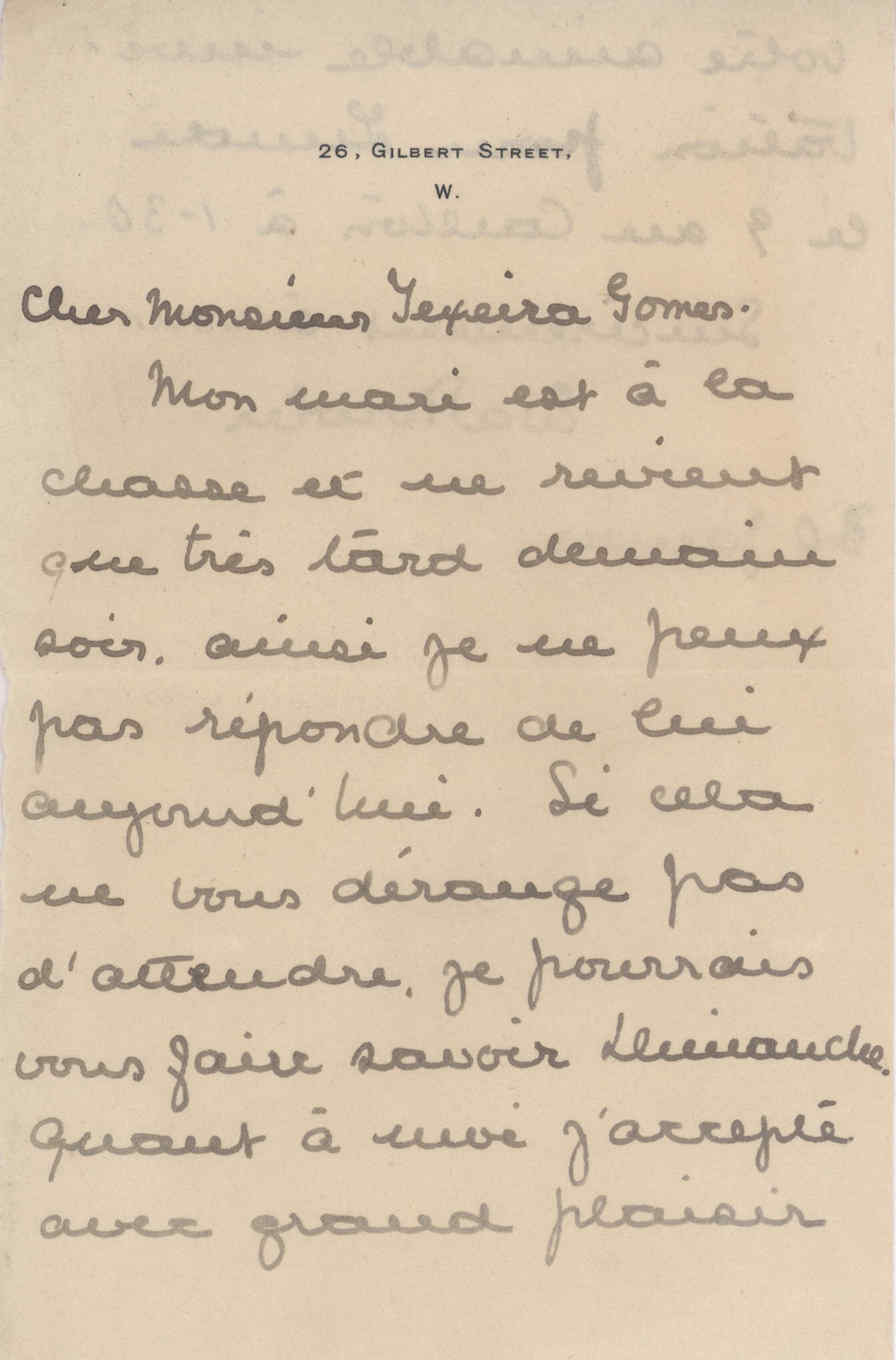 26, GILBERT STREET,
W.
Cher Monsieur Texeira Gomes.
Mon mari est à la
chasse et ne revient
que très tard demain
soir. ainsi je ne peux
pas répondre de lui
aujourd'hui. Si cela
ne vous dérange pas
d'attendre, je pourrais
vous faire savoir Dimanche.
Quant à moi j'accepte
avec grand plaisir